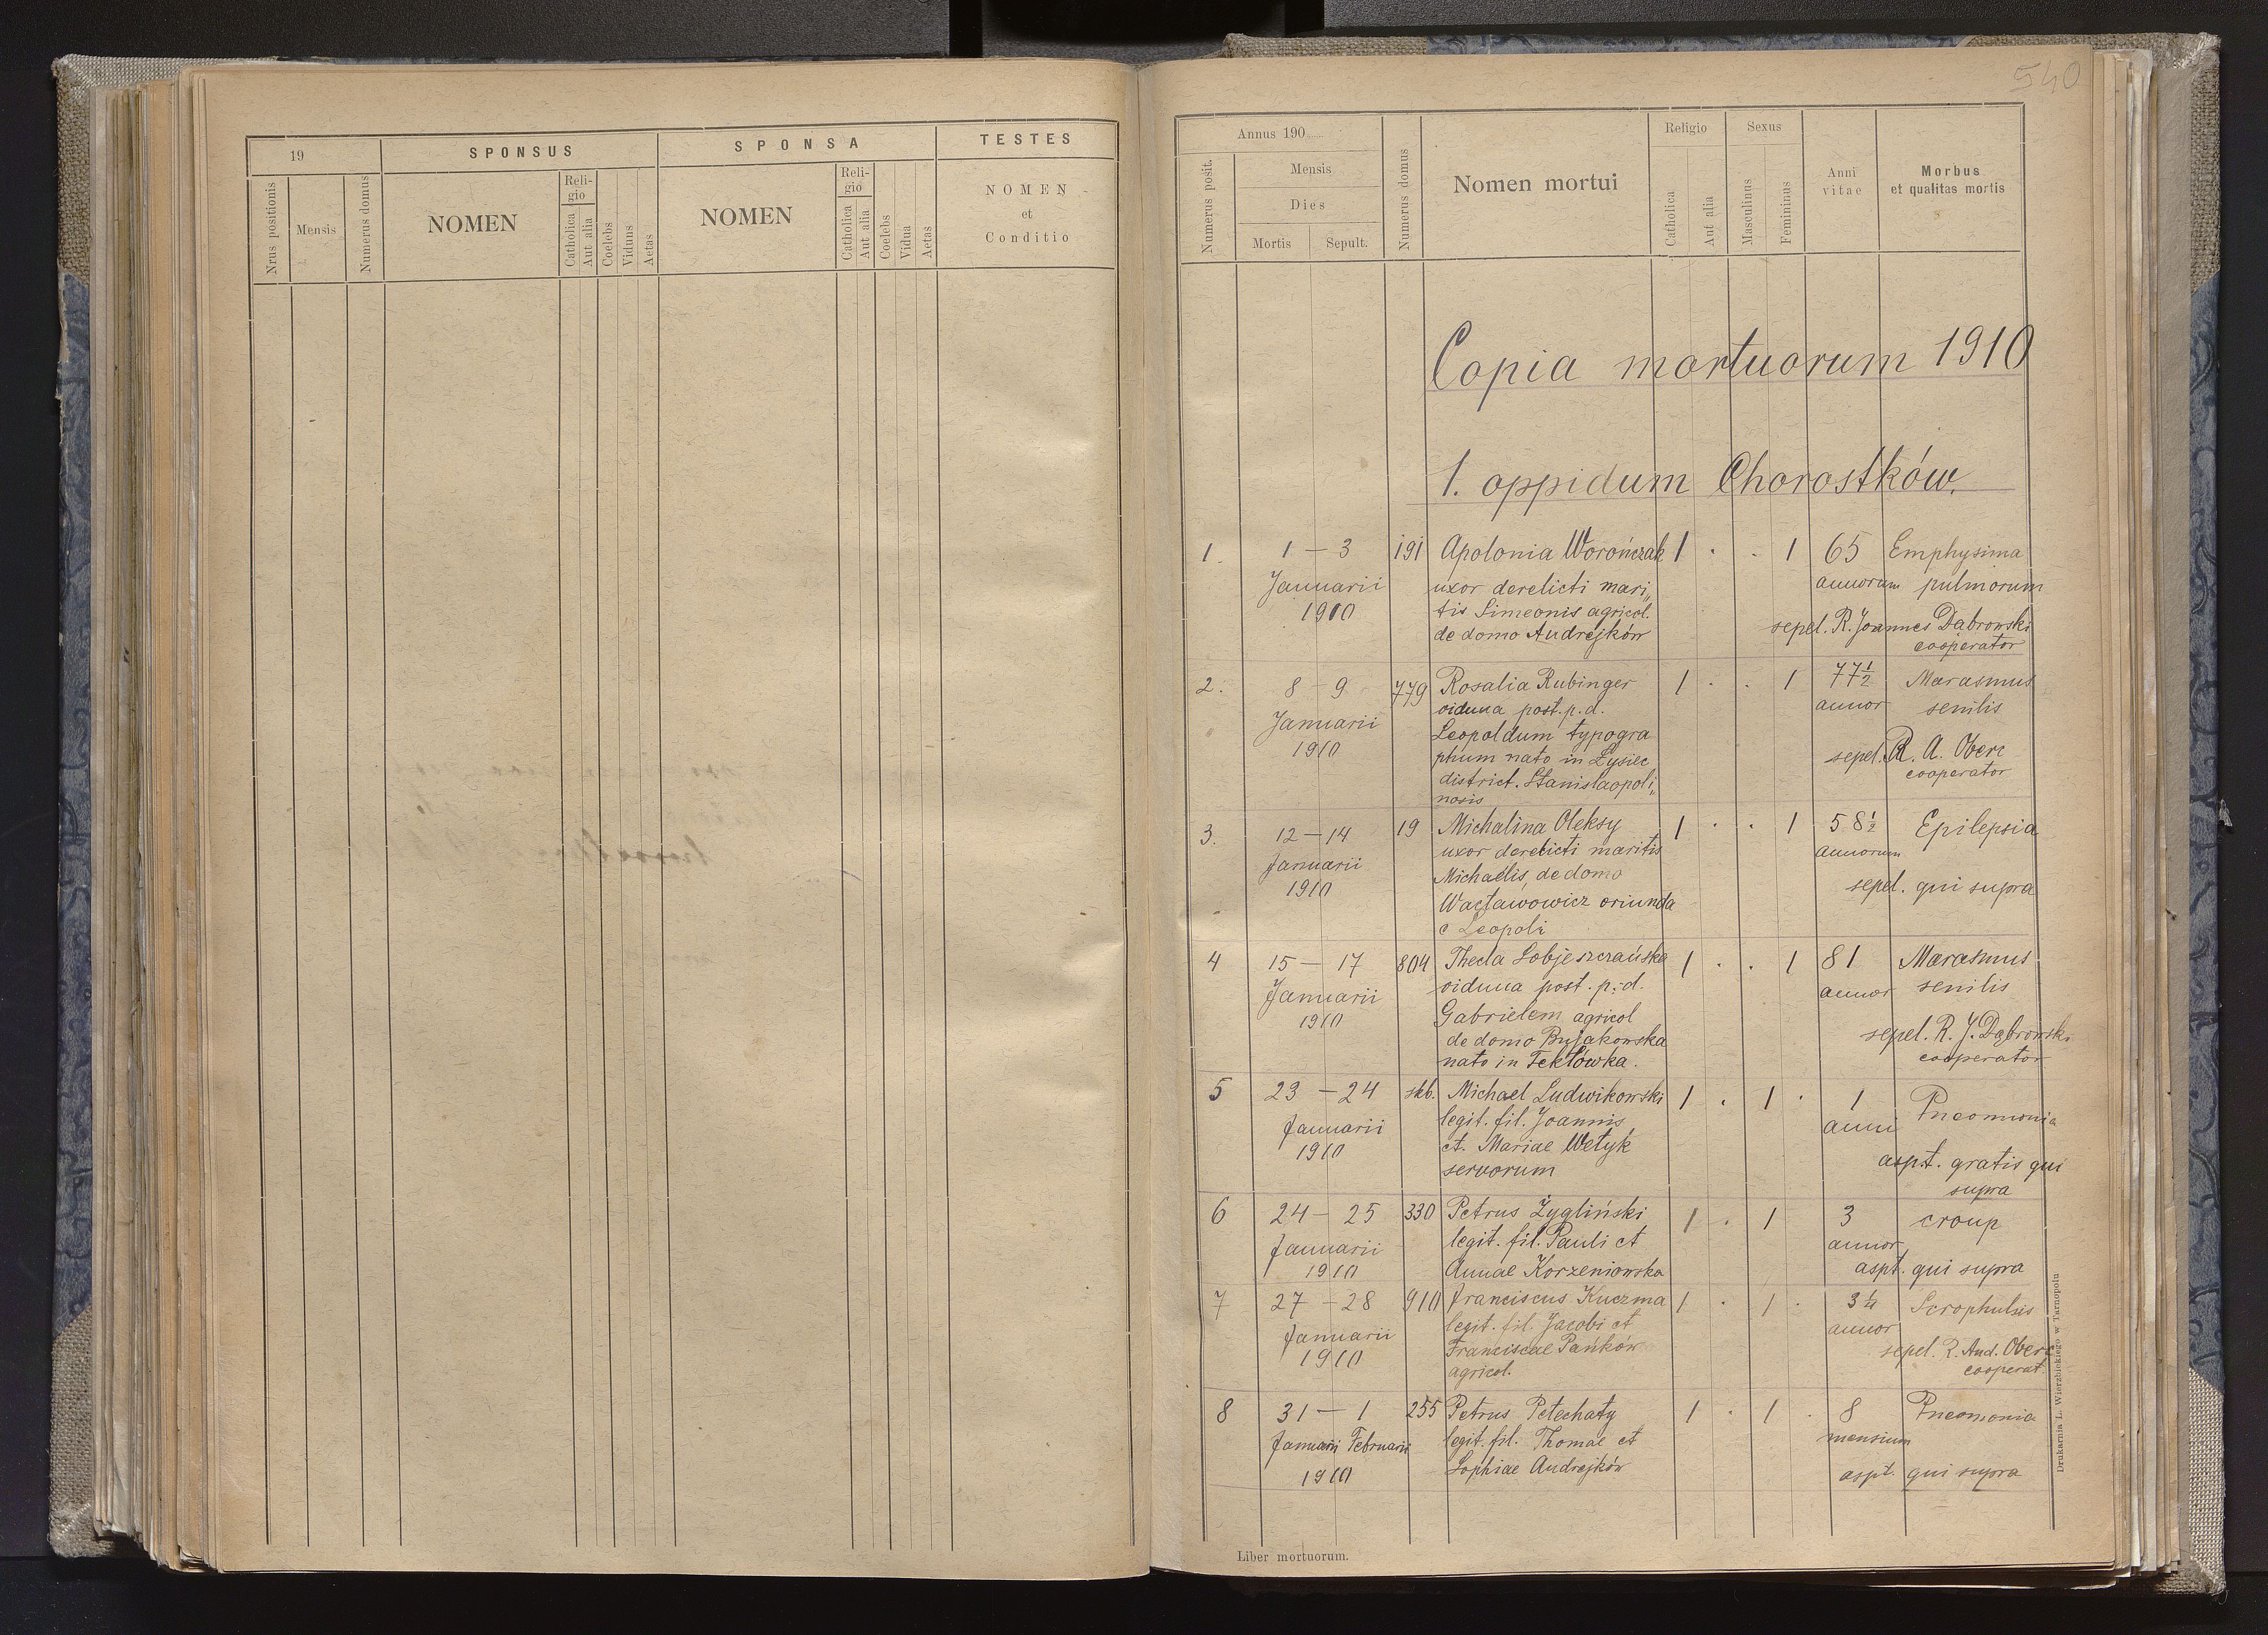 19
SPONSUS
SPONSA
TESTES
Nrus positionis
Mensis
Numerus domus
NOMEN
Reli-
gio
Catholica
Aut alia
Coelebs
Viduus
Aetas
NOMEN
Reli-
gio
Catholica
Aut alia
Coelebs
Vidua
Aetas
NOMEN
et
Conditio
540
Annus 190
Numerus posit.
Mensis
Dies
Mortis Sepult.
Numerus domus
Nomen mortui
Religio
Catholica
Aut alia
Sexus
Masculinus
Femininus
Anni
vitae
Morbus
et qualitas mortis
Copia mortuorum 1910
1. oppidum Chorostków.
1. 1 — 3 191 Apolonia Worończak 1 . . 1 65 Emphysima
Januarii uxor derelicti mari„ annorum pulmorum
1910 tis Simeonis agricol. sepel. R. Joannes Dabrowski
de domo Andrejków cooperator
2. 8 — 9 779 Rosalia Rubinger 1 . . 1 77½ Marasmus
oidua post. p. d. annor senilis
Januarii Leopoldum typogra
1910 phum nato in Łysiec sepel. R. A. Oberc
district. Stanislaopoli„ cooperator
nosis
3. 12 — 14 19 Michalina Oleksy 1 . . 1 58½ Epilepsia
Januarii uxor derelicti maritis annorum
1910 Michaelis, de domo sepel. qui supra
Wacławowicz oriunda
c Leopoli
4 15 — 17 804 Thecla Sobjeszczańska 1 . . 1 81 Marasmus
Januarii oidua post. p. d. annor senilis
1910 Gabrielem agricol sepel. R. J. Dąbrowski
de domo Bujakowska cooperator
nato in Teklówka.
5 23 — 24 skb. Michael Ludwikowski 1 . 1 . 1 Pneomonia
Januarii legit. fil. Joannis anni
1910 et. Mariae Wetyk aspt. gratis qui
servorum supra
6 24 — 25 330 Petrus Żygliński 1 . 1 3 croup
Januarii legit. fil. Pauli et annor
1910 Annae Korzeniowska aspt. qui supra
7 27 — 28 910 Franciscus Kuczma 1 . 1 . 3¼ Scrophulus
Januarii legit. fil. Jacobi et annor
1910 Franciscae Pańków sepel. R. And. Oberc
agricol. cooperat.
8 31 — 1 255 Petrus Petechaty 1 . 1 . 8 Pneomonia
Januarii Februarii legit. fil. Thomae et mensium
1910 Sophiae Andrejków aspt. qui supra
Liber mortuorum.
Drukarnia L. Wierzbickiego w Tarnopolu